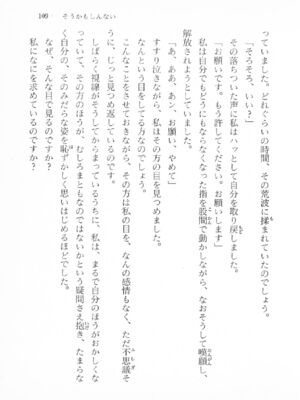 109　そうかもしんない
っていました。どれぐらいの時間、その荒波に揉まれていたのでしょう。
「そろそろ、いい？」
その落ちついた声に私はハッとして自分を取り戻しました。
「お願いです。もう許してください。お願い」
私は自分でもどうにもならなくなった指を股間で動かしながら、なおそうして嘆願し、
解放されようとしていました。
「あ、ああ、あン、お願い、やめて」
すすり泣きながら、私はその方の目を見つめました。
なんという目をしてる方なのでしょう。
こんなことをさせておきながら、その方は私の目を、なんの感情もなく、ただ不思議そ
うに、じっと見つめ返しているのです。
しばらく視線がそうしてからまっているうちに、私は、まるで自分のほうがおかしくな
っていて、その方のほうが、むしろまともなのではないかという疑問さえ抱き、たまらな
く自分の、そのみだらな姿を恥ずかしく思いはじめるほどでした。
なぜ、そんな目で見るのですか？
私になにを求めているのですか？